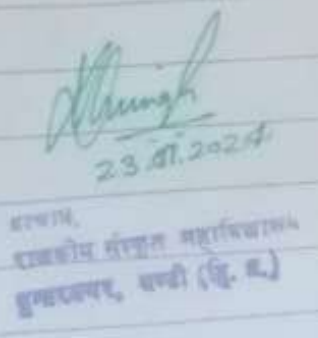 23.01.2024
प्राचार्य,
राजकीय संस्कृत महाविद्यालय
सुन्दरनगर, मण्डी (हि. प्र.)